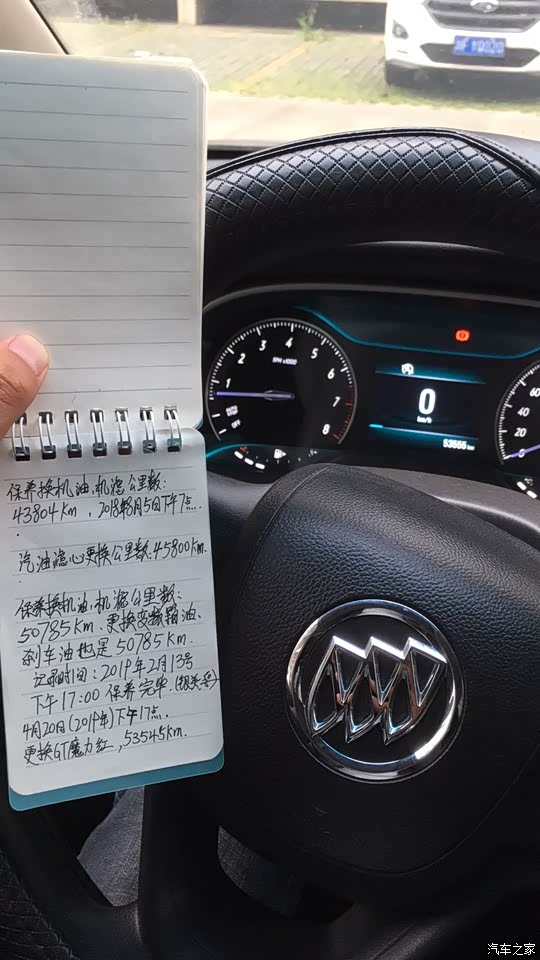 1
2
3
4
5
6
7
8
RPM x1000
OFF
0
km/h
53665 km
60
40
20
0
保养换机油,机滤公里数:
43804km,2018年8月5日下午1点.
汽油滤心更换公里数:45800km.
保养换机油,机滤公里数:
50785km.更换变速箱油、
刹车油也是50785km.
记录时间:2019年2月13号
下午17:00保养完毕.
4月20日(2019年)下午17点.
更换GT魔力红,53545km.
汽车之家